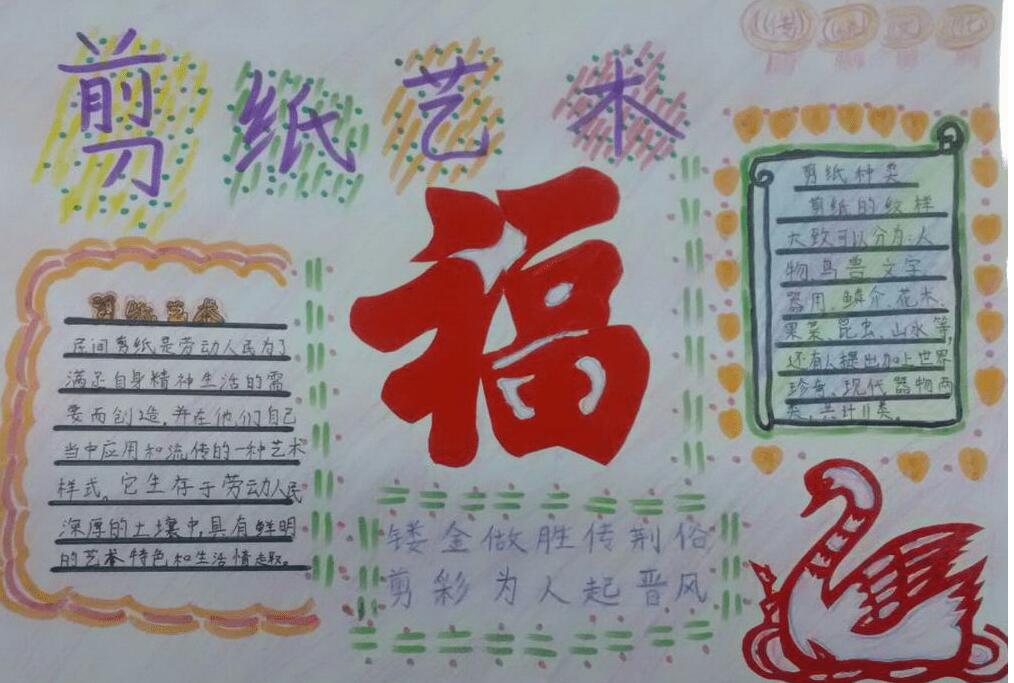 剪纸艺术
传统文化
福
剪纸种类
剪纸的纹样
大致可以分为:人
物鸟兽文字
器用、鳞介、花木、
果菜、昆虫、山水等,
还有人提出加上世界
珍奇、现代器物两
类,共计11类。
剪纸艺术
民间剪纸是劳动人民为了
满足自身精神生活的需
要而创造,并在他们自己
当中应用和流传的一种艺术
样式。它生存于劳动人民
深厚的土壤中,具有鲜明
的艺术特色和生活情趣。
镂金做胜传荆俗
剪彩为人起晋风